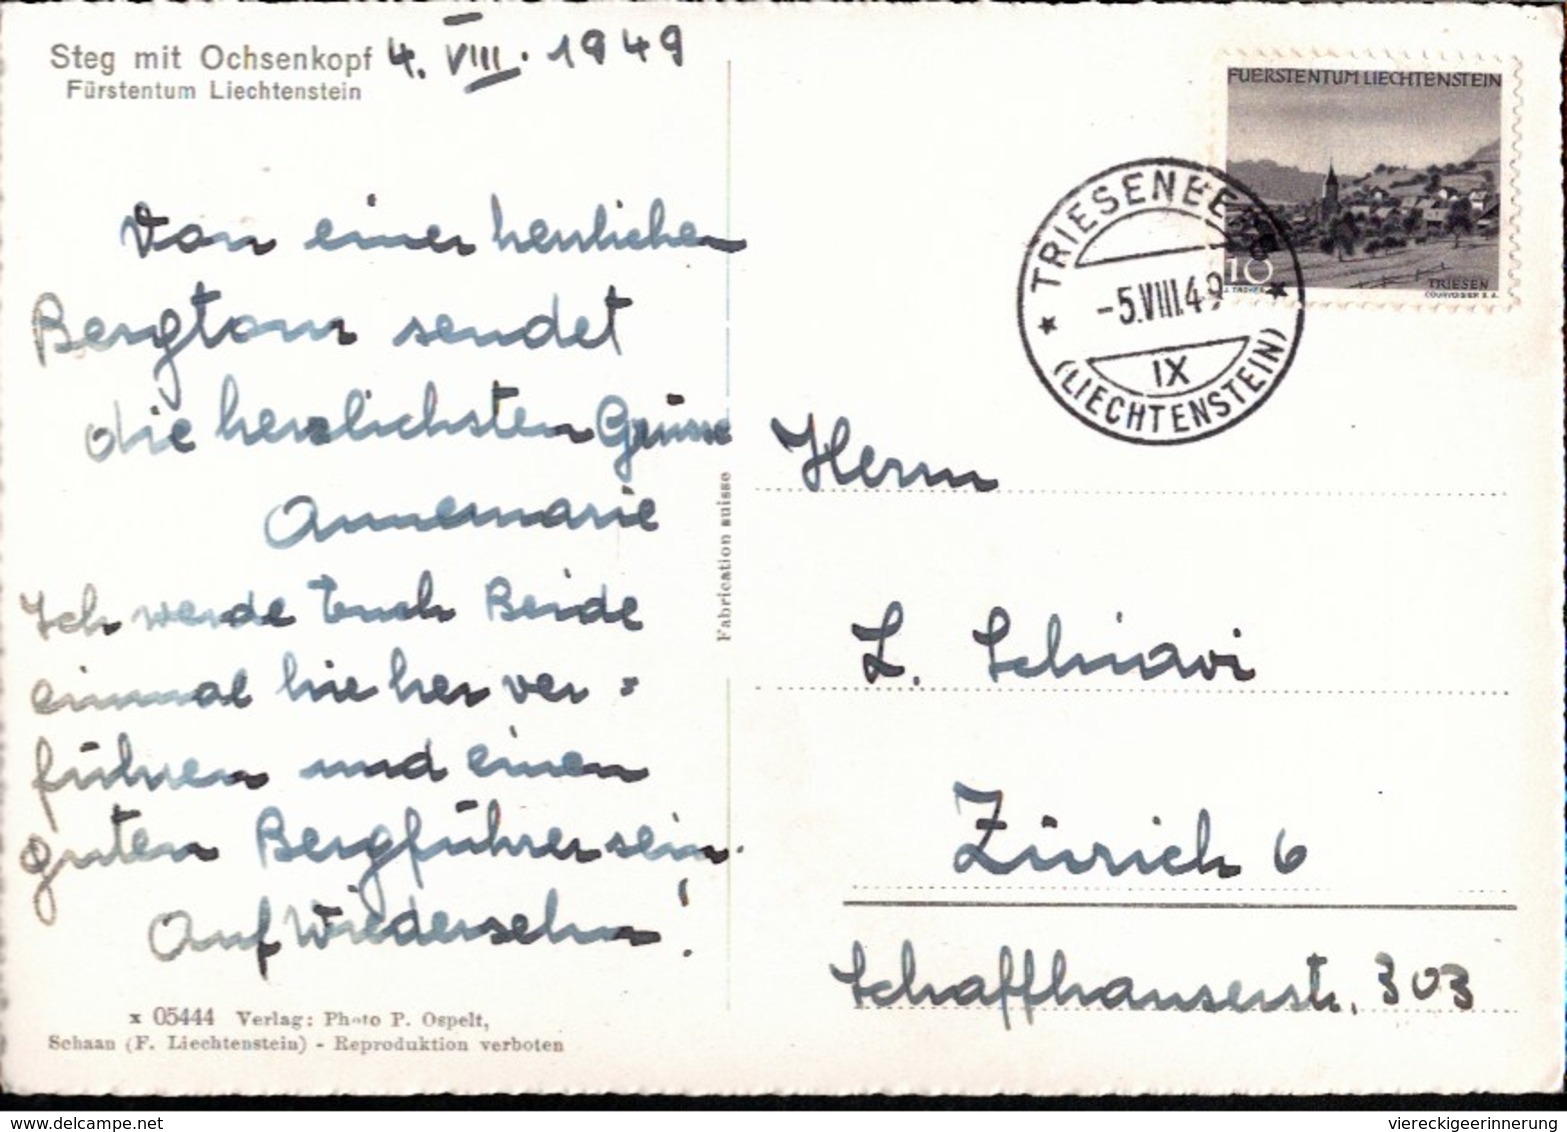 Steg mit Ochsenkopf 4. VIII. 1949
Fürstentum Liechtenstein
Von einer herrlichen
Bergtour sendet
die herzlichsten Grüsse
Annemarie
Ich werde Euch Beide
einmal hieher ver=
führen und einen
guten Bergführer sein.
Auf Wiedersehn!
x 05444 Verlag: Photo P. Ospelt,
Schaan (F. Liechtenstein) - Reproduktion verboten
Fabrication suisse
FUERSTENTUM LIECHTENSTEIN
10
TRIESEN
COURVOISIER S.A.
TRIESENBERG
-5.VIII.49
IX
(LIECHTENSTEIN)
Herrn
L. Schiavi
Zürich 6
Schaffhauserstr. 303
viereckigeerinnerung